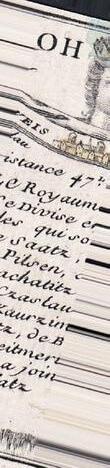 OH
EIS
au
istance 47.
Ce Royaum
se Divise e
les qui so
e Saatz
Pilsen,
achatitz
Czaslau
aurzin
tz, de B
eitmeri
a join
atz